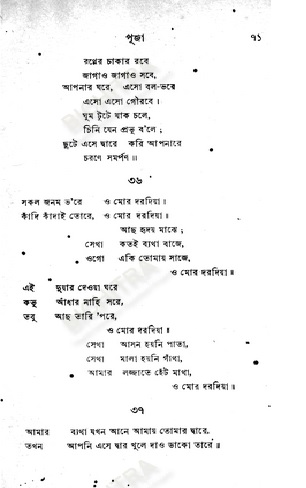 পূজা ৭১
রথের চাকার রবে
জাগাও জাগাও সবে,
আপনার ঘরে, এসো বল-ভরে
এসো এসো গৌরবে।
ঘুম টুটে যাক চলে,
চিনি যেন প্রভু ব'লে;
ছুটে এসে দ্বারে করি আপনারে
চরণে সমর্পণ॥
৩৬
সকল জনম ভ'রে ও মোর দরদিয়া।
কাঁদি কাঁদাই তোরে, ও মোর দরদিয়া॥
আছ হৃদয় মাঝে;
সেথা কতই ব্যথা বাজে,
ওগো একি তোমায় সাজে,
ও মোর দরদিয়া॥
এই দুয়ার দেওয়া ঘরে
কভু আঁধার নাহি সরে,
তবু আছ তারি 'পরে,
ও মোর দরদিয়া।
সেথা আসন হয়নি পাতা,
সেথা মালা হয়নি গাঁথা,
আমার লজ্জাতে হেঁট মাথা,
ও মোর দরদিয়া॥
৩৭
আমার ব্যথা যখন আনে আমায় তোমার দ্বারে,
তখন আপনি এসে দ্বার খুলে দাও ডাকো তারে॥